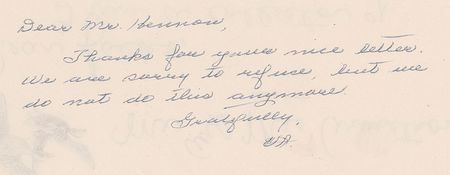 Dear Mr. Hennon,
Thanks for your nice letter.
We are sorry to refuse, but we
do not do this anymore.
Gratefully,